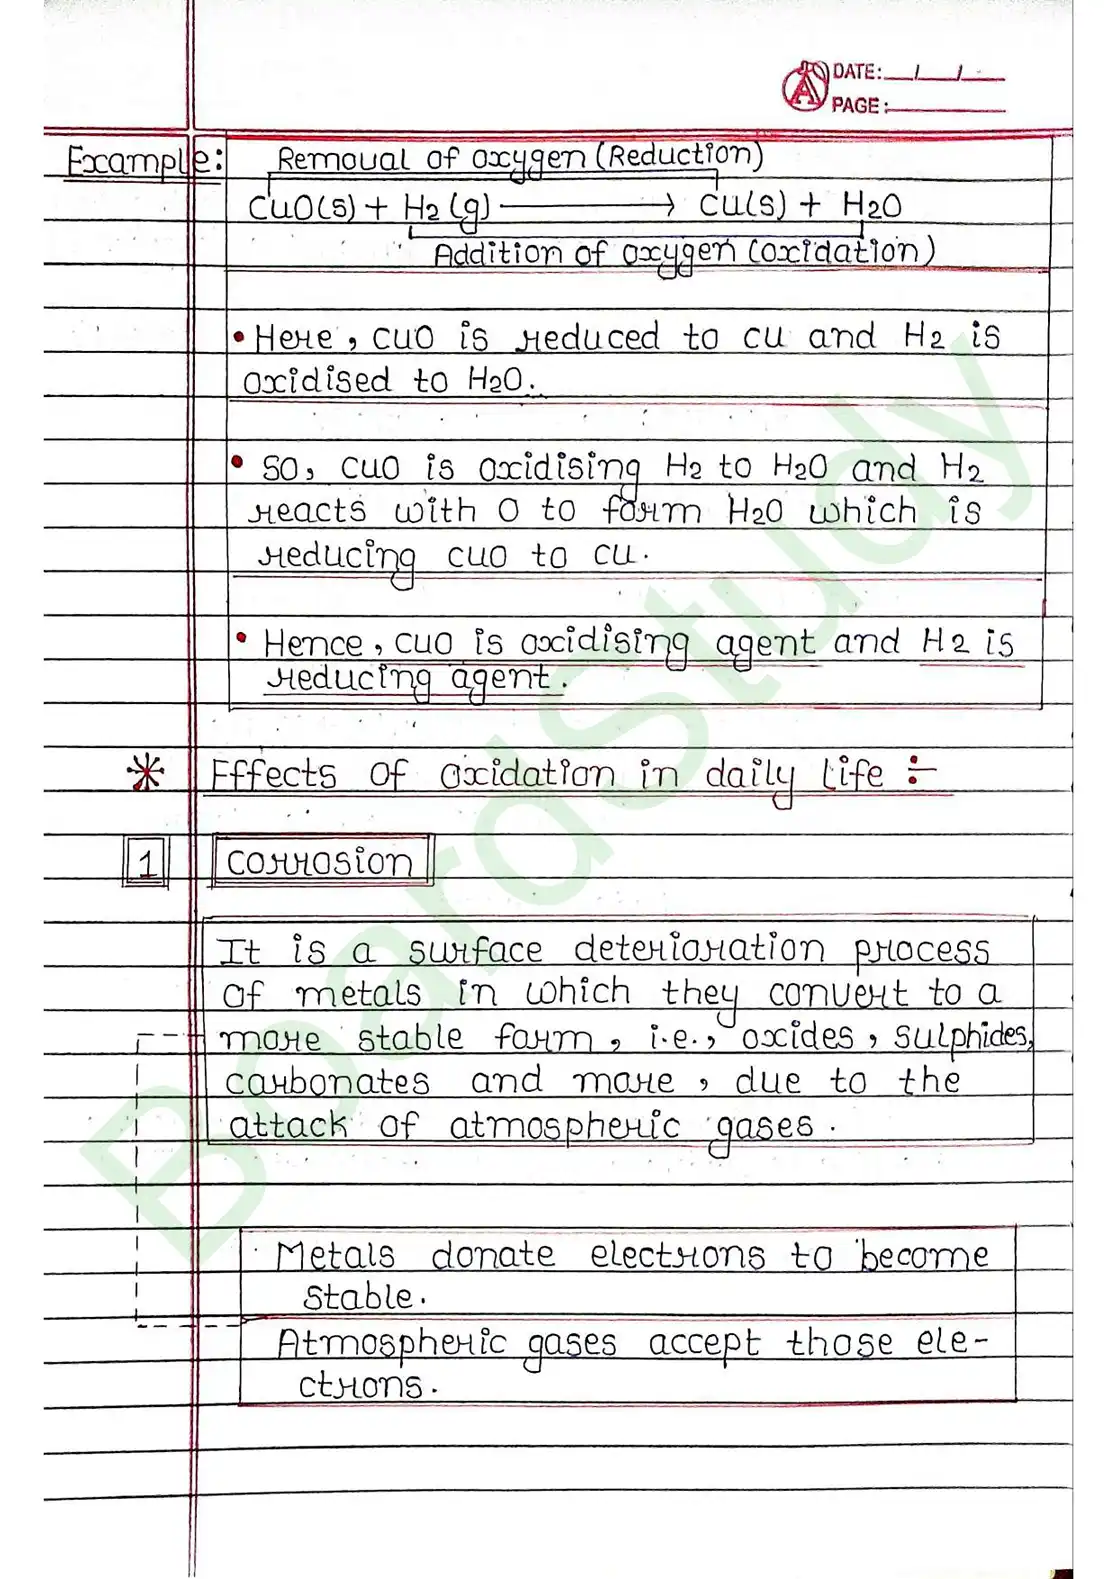 DATE: / /
PAGE:
Example:
Removal of oxygen (Reduction)
CuO(s) + H2(g) → Cu(s) + H2O
Addition of oxygen (oxidation)
• Here, CuO is reduced to Cu and H2 is
oxidised to H2O.
• So, CuO is oxidising H2 to H2O and H2
reacts with O to form H2O which is
reducing CuO to Cu.
• Hence, CuO is oxidising agent and H2 is
reducing agent.
Effects of oxidation in daily life :-
1 Corrosion
It is a surface deterioration process
of metals in which they convert to a
more stable form, i.e., oxides, sulphides,
carbonates and more, due to the
attack of atmospheric gases.
Metals donate electrons to become
stable.
Atmospheric gases accept those ele-
ctrons.
BoardStudy